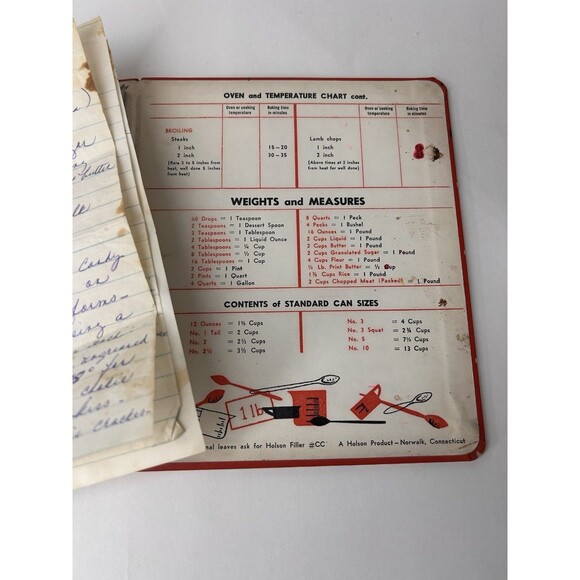 OVEN and TEMPERATURE CHART cont.
Oven or cooking temperature
Baking time in minutes
Oven or cooking temperature
Baking time in minutes
BROILING
Steaks
1 inch 15—20
2 inch 30—35
(Rare 3 to 5 inches from heat, well done 5 inches from heat)
Lamb chops
1 inch
2 inch
(Above times at 3 inches from heat for well done)
WEIGHTS and MEASURES
60 Drops = 1 Teaspoon
2 Teaspoons = 1 Dessert Spoon
3 Teaspoons = 1 Tablespoon
2 Tablespoons = 1 Liquid Ounce
4 Tablespoons = ¼ Cup
8 Tablespoons = ½ Cup
16 Tablespoons = 1 Cup
2 Cups = 1 Pint
2 Pints = 1 Quart
4 Quarts = 1 Gallon
8 Quarts = 1 Peck
4 Pecks = 1 Bushel
16 Ounces = 1 Pound
2 Cups Liquid = 1 Pound
2 Cups Butter = 1 Pound
2 Cups Granulated Sugar = 1 Pound
4 Cups Flour = 1 Pound
¼ Lb. Print Butter = ½ Cup
1⅞ Cups Rice = 1 Pound
2 Cups Chopped Meat (Packed) = 1 Pound
CONTENTS of STANDARD CAN SIZES
12 Ounces = 1½ Cups
No. 1 Tall = 2 Cups
No. 2 = 2½ Cups
No. 2½ = 3½ Cups
No. 3 = 4 Cups
No. 3 Squat = 2¾ Cups
No. 5 = 7½ Cups
No. 10 = 13 Cups
1 lb
nal leaves ask for Holson Filler #CC
A Holson Product — Norwalk, Connecticut
butter
or
using a